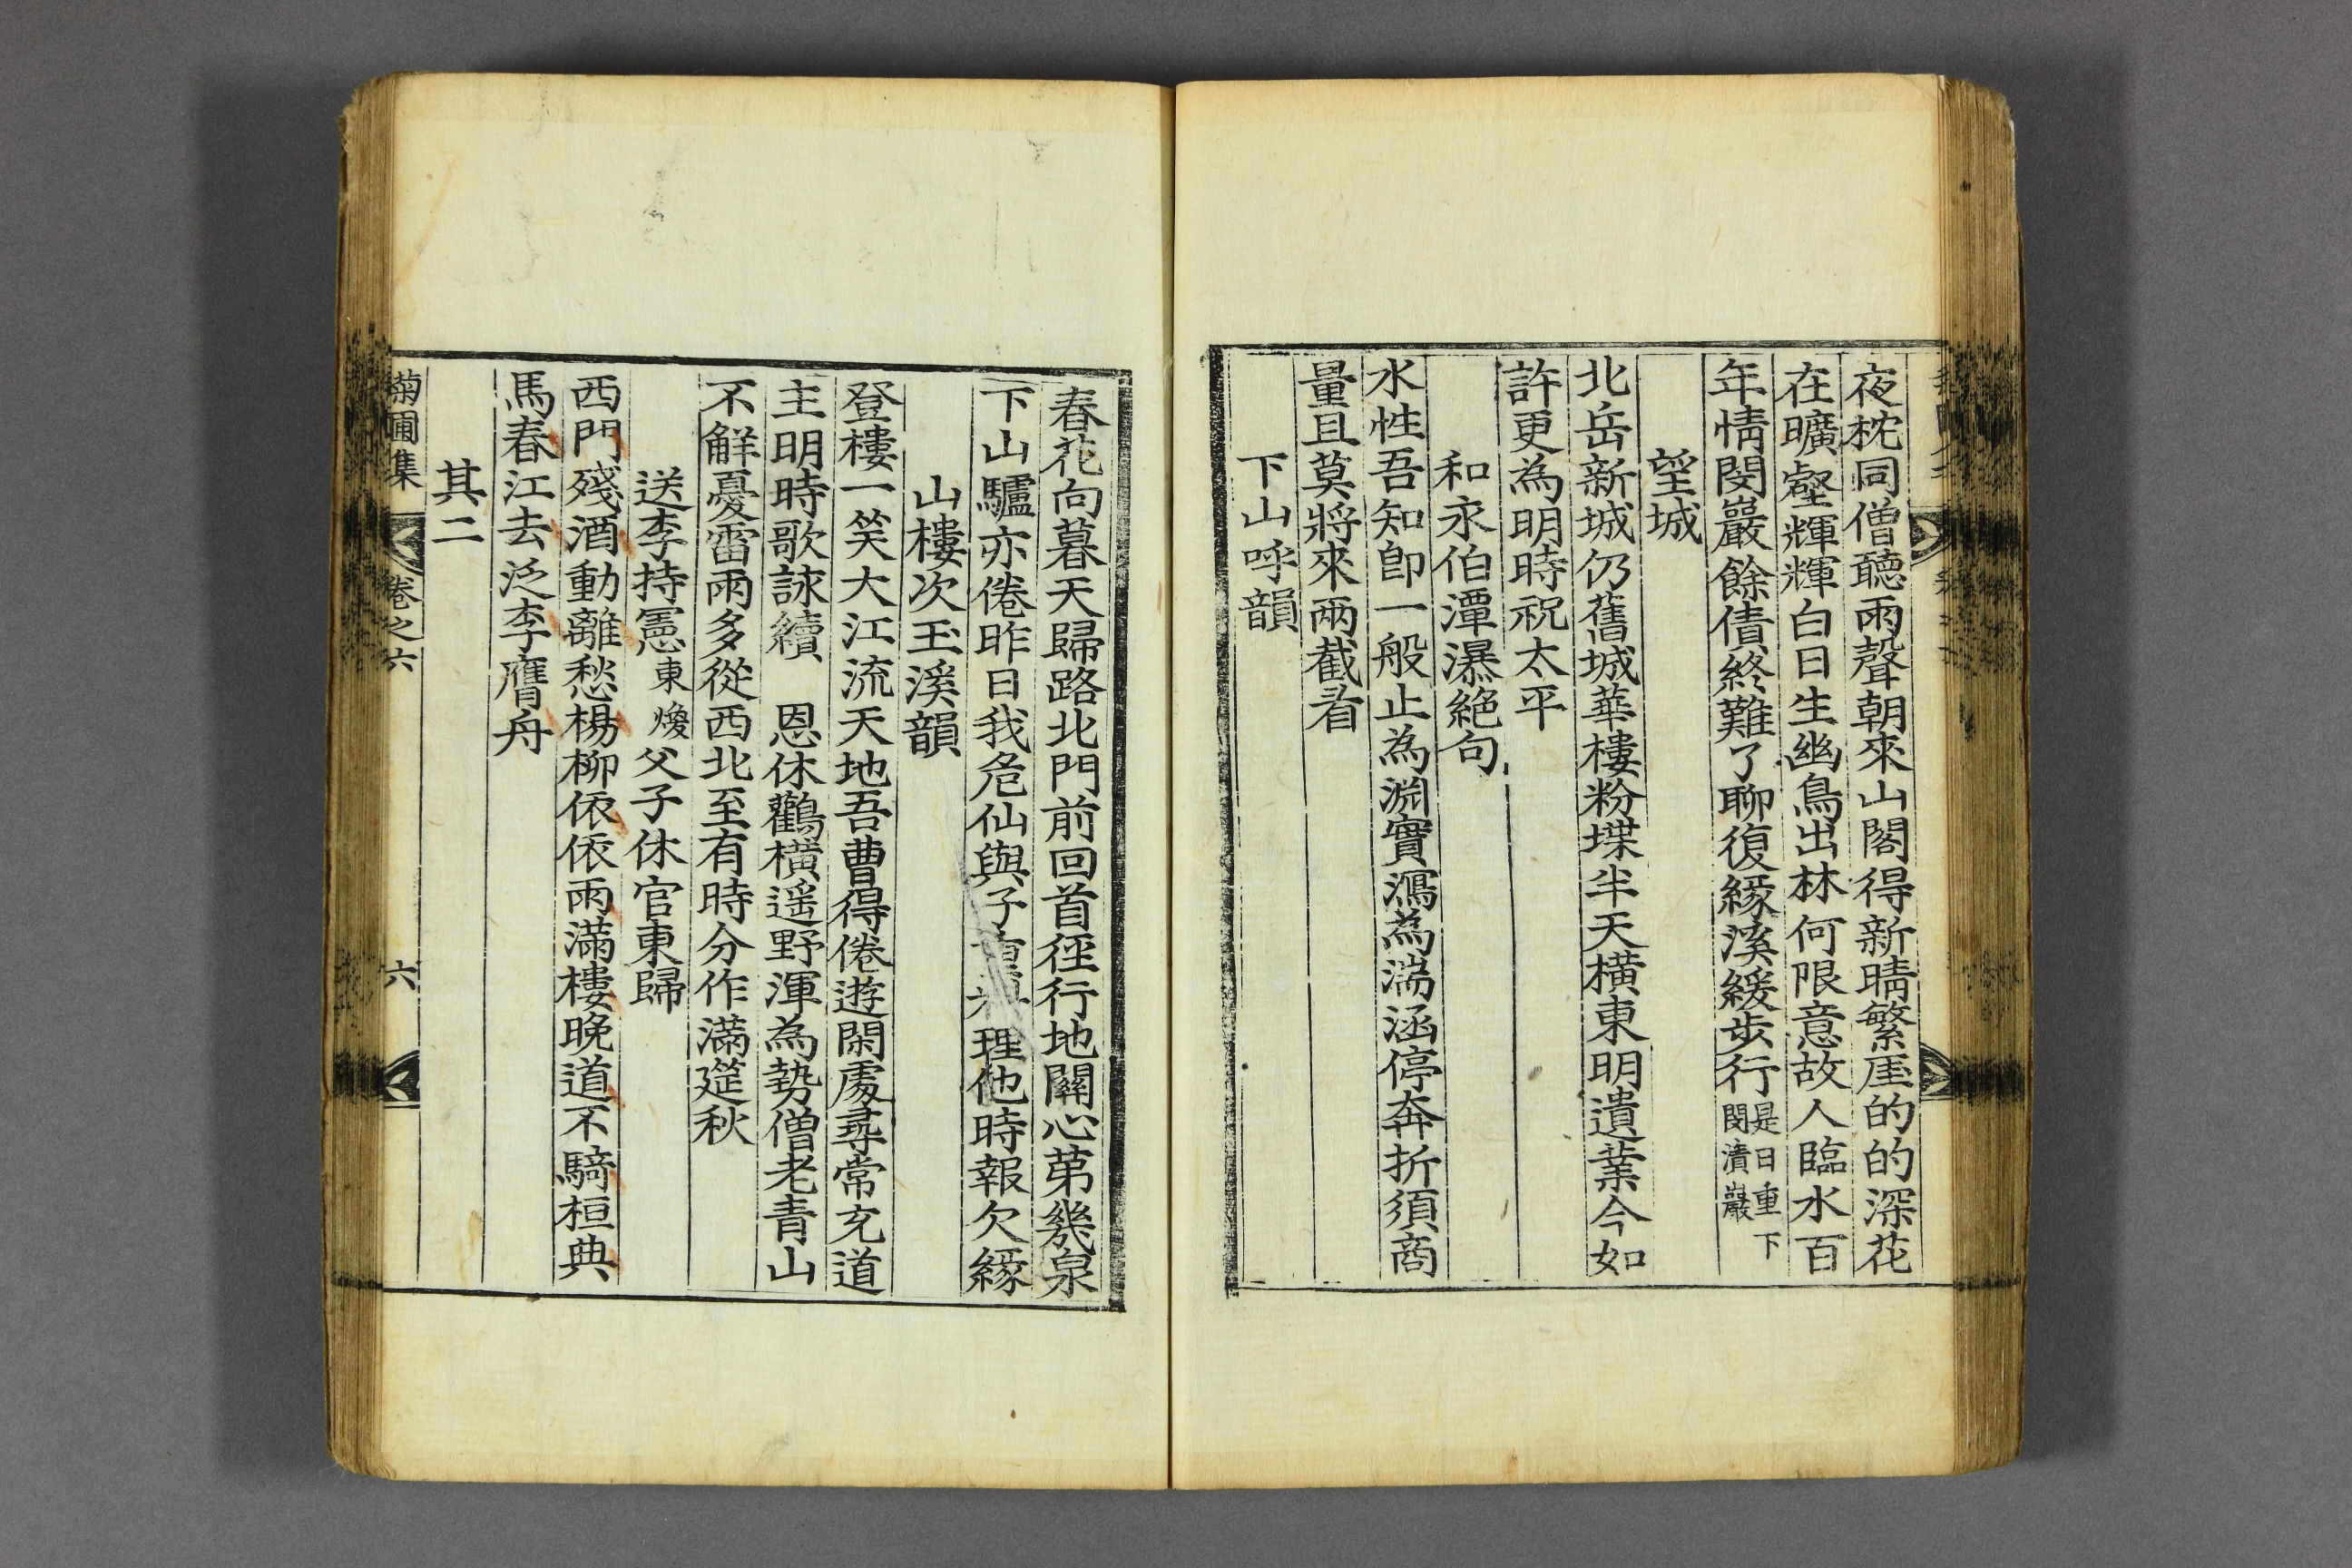 夜枕同僧聽雨聲朝來山閣得新晴繁厓的的深花
在曠壑輝輝白日生幽鳥出林何限意故人臨水百
年情閔巖餘債終難了聊復緣溪緩步行是日重下閔漬巖
望城
北岳新城仍舊城華樓粉堞半天橫東明遺業今如
許更為明時祝太平
和永伯潭瀑絕句
水性吾知卽一般止為淵實瀉為湍涵停奔折須商
量且莫將來兩截看
下山呼韻
春花向暮天歸路北門前回首徑行地關心第幾泉
下山驢亦倦昨日我危仙與子理他時報欠緣
山樓次玉溪韻
登樓一笑大江流天地吾曹得倦遊閑處尋常充道
主明時歌詠續 恩休鸛橫遥野渾為勢僧老青山
不觧憂雷雨多從西北至有時分作滿筵秋
送李持憲東煥父子休官東歸
西門殘酒動離愁楊柳依依雨滿樓晚道不騎桓典
馬春江去泛李膺舟
其二
菊圃集 卷之六 六